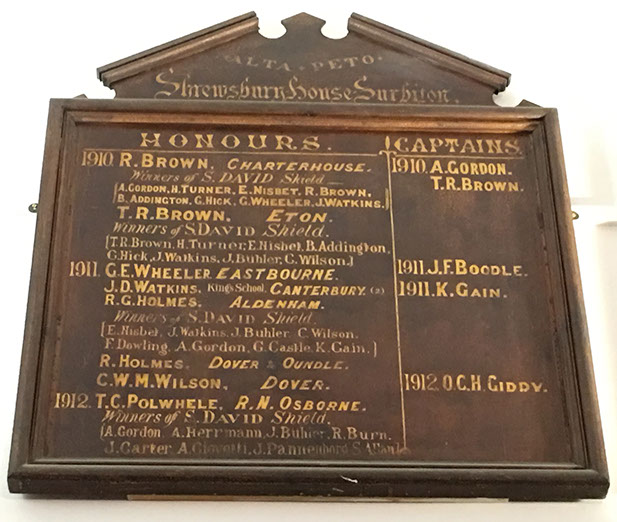 ALTA · PETO ·
Shrewsbury House Surbiton.
HONOURS.
1910. R. BROWN, CHARTERHOUSE.
Winners of S. DAVID Shield
[A. GORDON, H. TURNER, E. NISBET, R. BROWN,
B. ADDINGTON, G. HICK, G. WHEELER, J. WATKINS.]
T. R. BROWN. ETON.
Winners of S. DAVID Shield.
[T. R. Brown, H. Turner, E. Nisbet, B. Addington,
G. Hick, J. Watkins, J. Buhler, C. Wilson.]
1911. G. E. WHEELER. EASTBOURNE.
J. D. WATKINS, King's School, CANTERBURY. (2)
R. G. HOLMES. ALDENHAM.
Winners of S. DAVID Shield
[E. Nisbet, J. Watkins, J. Buhler, C. Wilson.
F. Dowling, A. Gordon, G. Castle, K. Gain.]
R. HOLMES. DOVER & OUNDLE.
C. W. M. WILSON, DOVER.
1912. T. C. POLWHELE, R. N. OSBORNE.
Winners of S. DAVID Shield.
[A. Gordon, A. Herrmann, J. Buhler, R. Burn,
J. Carter, A. J. Pannenborg,
CAPTAINS.
1910. A. GORDON.
T. R. BROWN.
1911. J. F. BOODLE.
1911. K. GAIN.
1912. O. C. H. GIDDY.